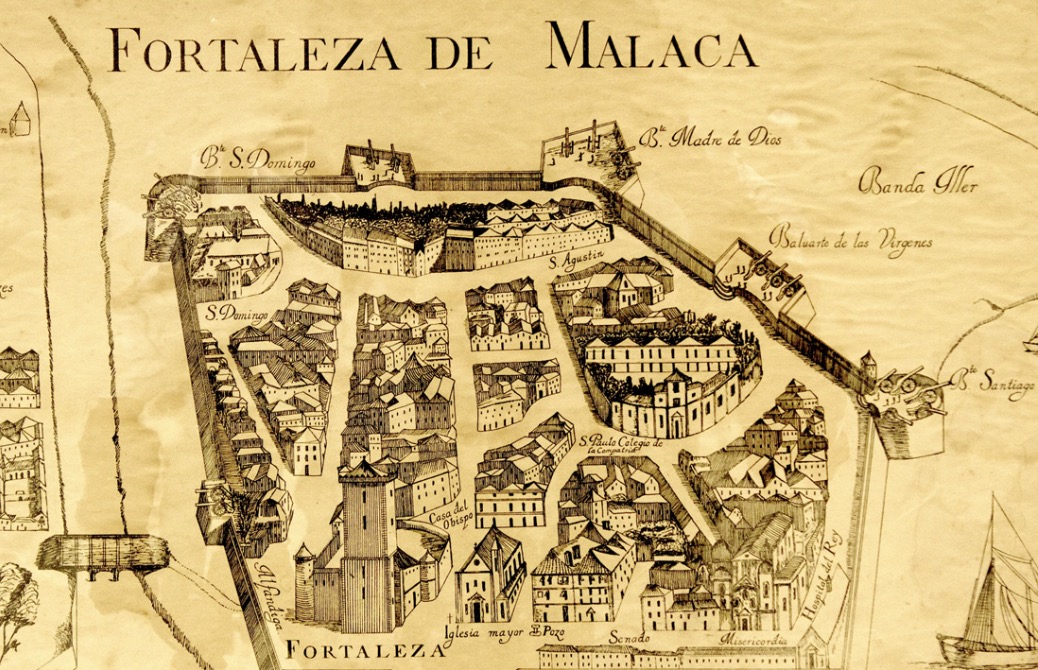 FORTALEZA DE MALACA
Bte S. Domingo
Bte Madre de Dios
Banda Iller
Baluarte de las Virgenes
S. Agustin
S. Domingo
Bte Santiago
S. Paulo Colegio de
la Compatria
Casa del
Obispo
Alfandiga
Hospital del Rey
Iglesia mayor El Pozo
Senado
Misericordia
FORTALEZA